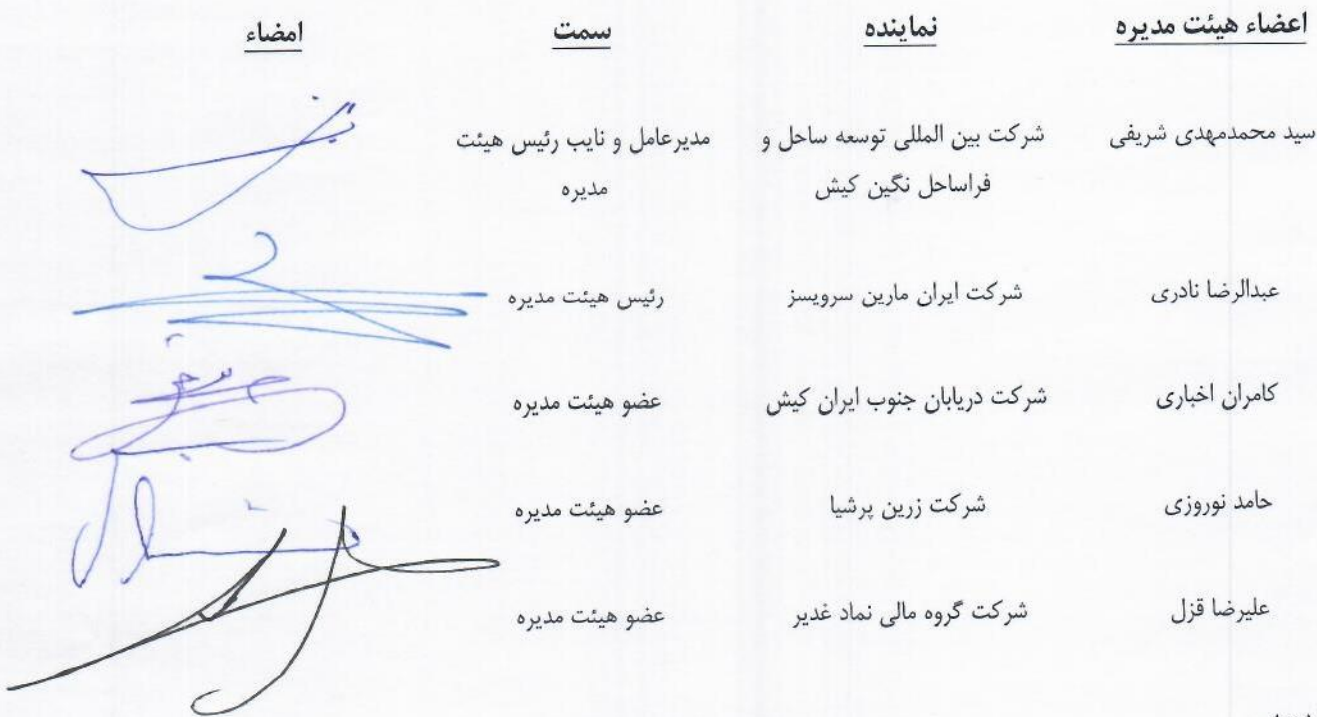 اعضاء هیئت مدیره نماینده سمت امضاء
سید محمدمهدی شریفی شرکت بین المللی توسعه ساحل و مدیرعامل و نایب رئیس هیئت
فراساحل نگین کیش مدیره
عبدالرضا نادری شرکت ایران مارین سرویسز رئیس هیئت مدیره
کامران اخباری شرکت دریابان جنوب ایران کیش عضو هیئت مدیره
حامد نوروزی شرکت زرین پرشیا عضو هیئت مدیره
علیرضا قزل شرکت گروه مالی نماد غدیر عضو هیئت مدیره